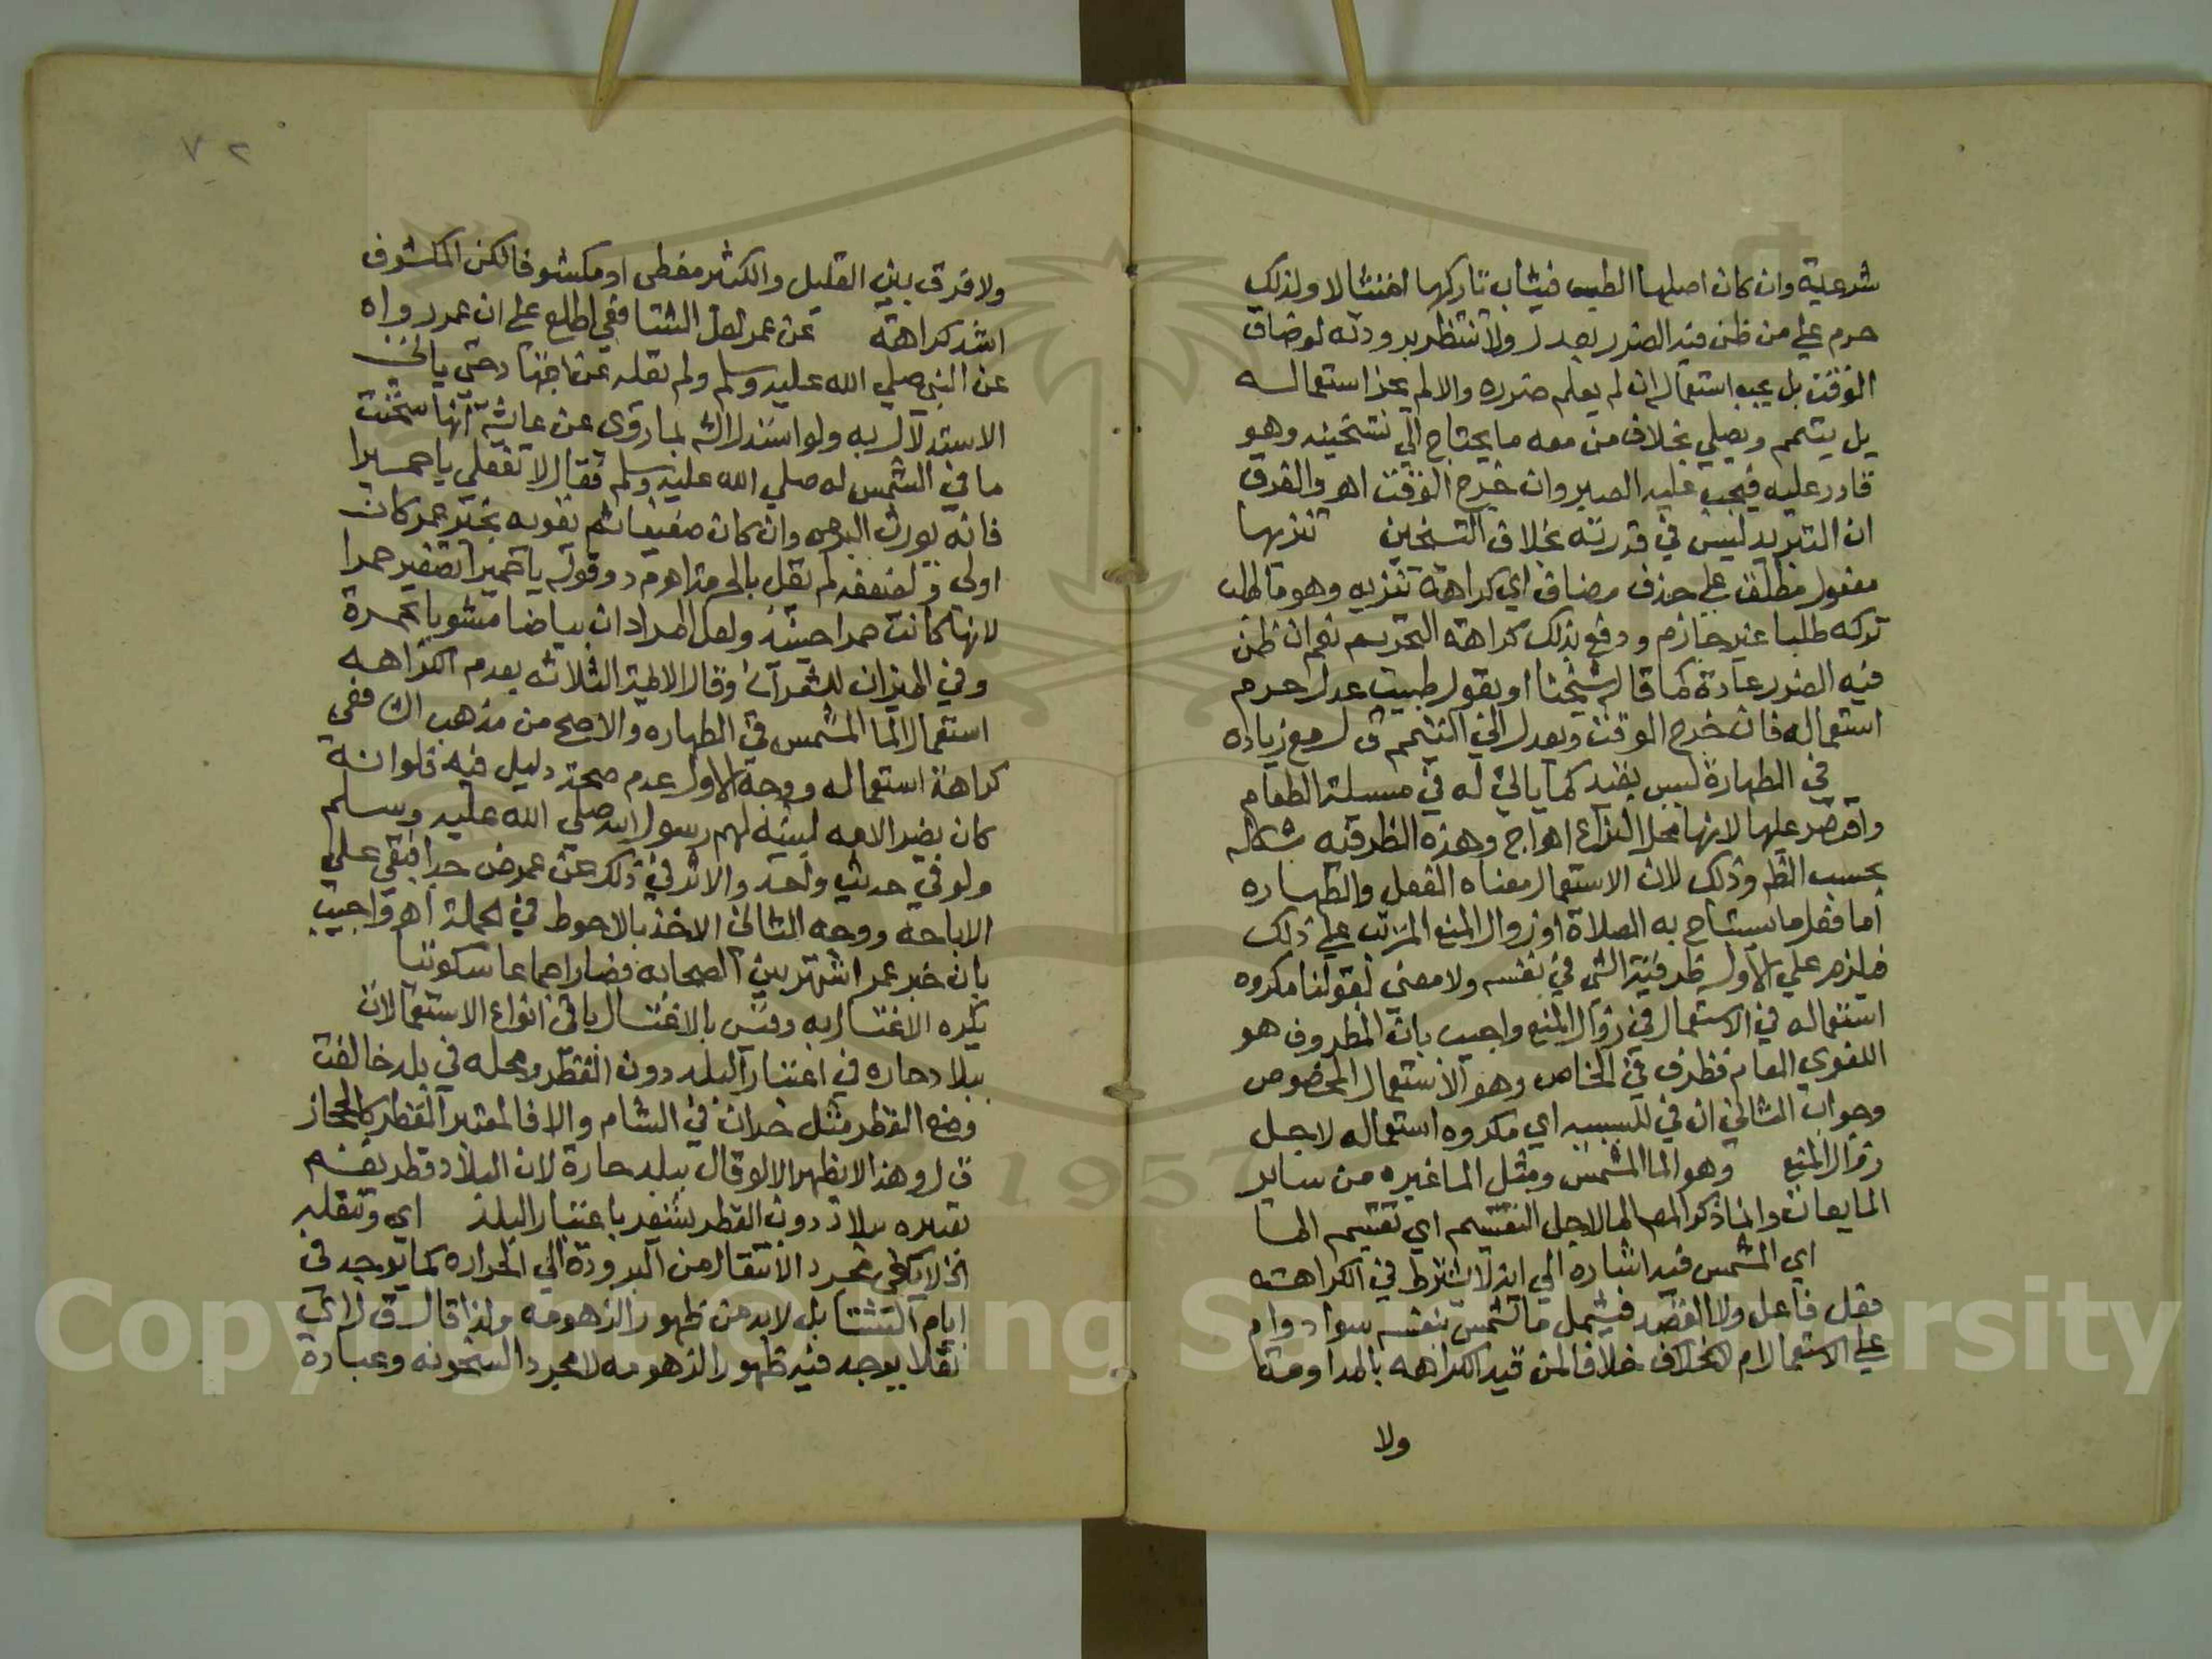 شرعية وان كان اصلها الطب فيثاب تاركها امتثالا ولذلك
حرم علي من ظن فيه الضرر بعدل ولا تنتظر برودته لو ضاق
الوقت بل يجب استعماله ان لم يعلم ضرره والا لم يجز استعماله
بل يتيمم ويصلي بخلاف من معه ما يحتاج الي تسخينه وهو
قادر عليه فيجب عليه الصبر وان خرج الوقت اهـ والفرق
ان التبريد ليس في قدرته بخلاف التسخين تنزيها
مفعول مطلق علي حذف مضاف اي كراهة تنزيه وهو ما طلب
تركه طلبا غير جازم ودفع بذلك كراهة التحريم نعم ان ظن
فيه الضرر عادة كما قاله شيخنا او بقول طبيب عدل حرم
استعماله فان خرج الوقت ويعدل الي التيمم ق ل مع زياده
في الطهارة ليس بقيد كما ياتي له في مسئلة الطعام
واقتصر عليها لانها محل النزاع اهـ اج وهذه الظرفيه مشكله
بحسب الظ وذلك لان الاستعمال معناه الفعل والطهاره
اما فعل ما يستباح به الصلاة او زوال المنع المترتب علي ذلك
فيلزم علي الاول ظرفية الشي في نفسه ولا معني لقولنا مكروه
استعماله في الاستعمال في زوال المنع واجيب بان المظروف هو
اللغوي العام فظرف في الخاص وهو الاستعمال المخصوص
وجواب الثاني ان في للسببيه اي مكروه استعماله لاجل
زوال المنع وهو الما المشمس ومثل الما غيره من ساير
المايعات وانما ذكر المص الما لاجل التقسيم اي تقسيم الما
اي المشمس فيه اشاره الي انه لا يشترط في الكراهة
فعل فاعل ولا القصد فيشمل ما تشمس بنفسه سوا دوام
علي الاستعمال ام لا بخلاف خلافا لمن قيد الكراهه بالمداومة
ولا
٧٢
ولا فرق بين القليل والكثير مغطى او مكشوفا لكن المكشوف
اشد كراهة عن عمر لعل الشافعي اطلع علي ان عمر رواه
عن النبي صلي الله عليه وسلم ولم تقله عن اجتهاد حتي ياتي
الاستدلال به ولو استدل اش بما روي عن عائشة انها سخنت
ما في الشمس له صلي الله عليه وسلم فقال لا تفعلي يا حميرا
فانه يورث البرص وان كان ضعيفا ثم تقويه بخبر عمر كان
اولى ولضعفه لم نقل بالحرمة اهـ م د وقوله يا حميرا تصغير حمرا
لانها كانت حمرا حينئذ ولعل المراد ان بياضا مشوبا بحمرة
وفي الميزان للشعراني وقال الايمة الثلاثه بعدم الكراهه
استعمال الما المشمس في الطهاره والاصح من مذهب الشافعي
كراهة استعماله ووجه الاول عدم صحة دليل فيه فلو انه
كان يضر الامه لبينه لهم رسول الله صلي الله عليه وسلم
ولو في حديث واحد والاثر في ذلك عن عمر ض جدا فبقي علي
الاباحة ووجه الثاني الاخذ بالاحوط في الجملة اهـ واجيب
بان خبر عمر اشتهر بين الصحابه فصار اجماعا سكوتيا
يكره الاغتسال به وقس بالاغتسال باقي انواع الاستعمالات
ببلاد حاره في اعتبار البلد دون القطر ومحله في بلد خالفت
وضع القطر مثل حران في الشام والا فالمعتبر القطر كالحجاز
ق ل وهذا لا يظهر الا لو قال ببلد حارة لان البلاد قطر بقسم
تعبيره ببلاد دون القطر يشعر باعتبار البلد اي وتنقله
اذ لا يكفي مجرد الانتقال من البرودة الي الحراره كما يوجد في
ايام الشتا بل لا بد من ظهور الزهومه ولذا قال ق ل اي
نقلا يوجد فيه ظهور الزهومه لا مجرد السخونه وعبارة